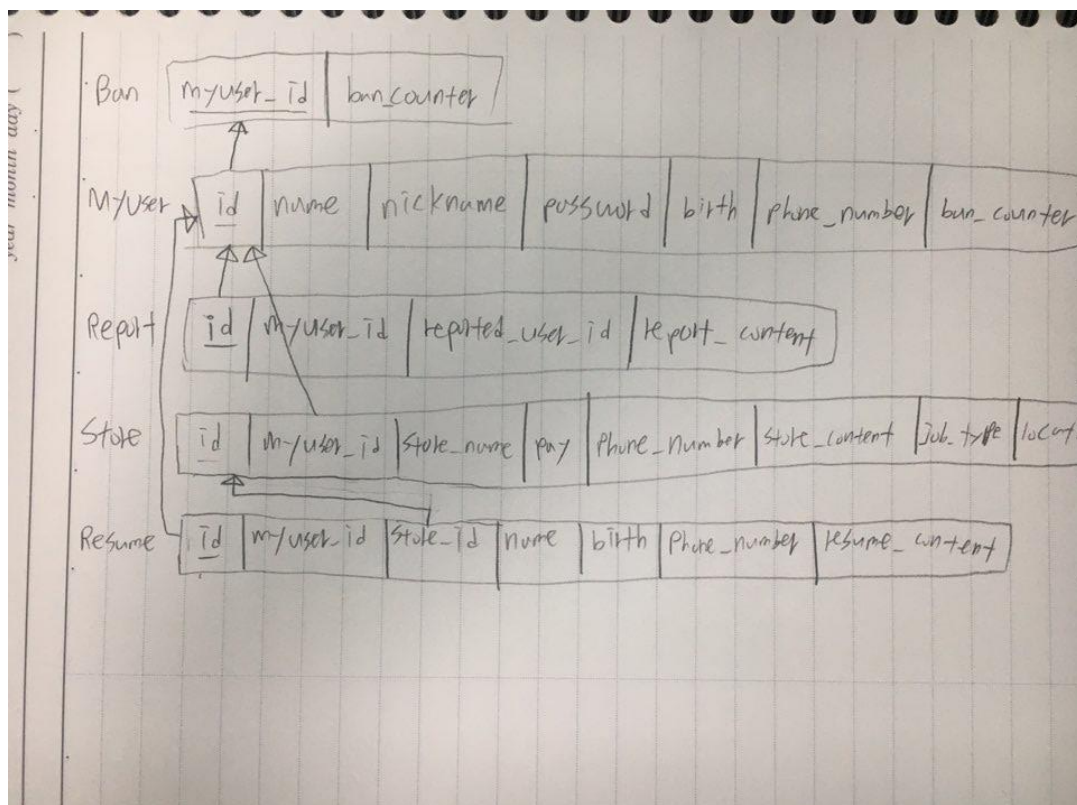 year month day (
Ban myuser_id ban_counter
Myuser id name nickname password birth phone_number ban_counter
Report id myuser_id reported_user_id report_content
Store id myuser_id store_name pay phone_number store_content Job_type locat
Resume id myuser_id store_id name birth phone_number resume_content